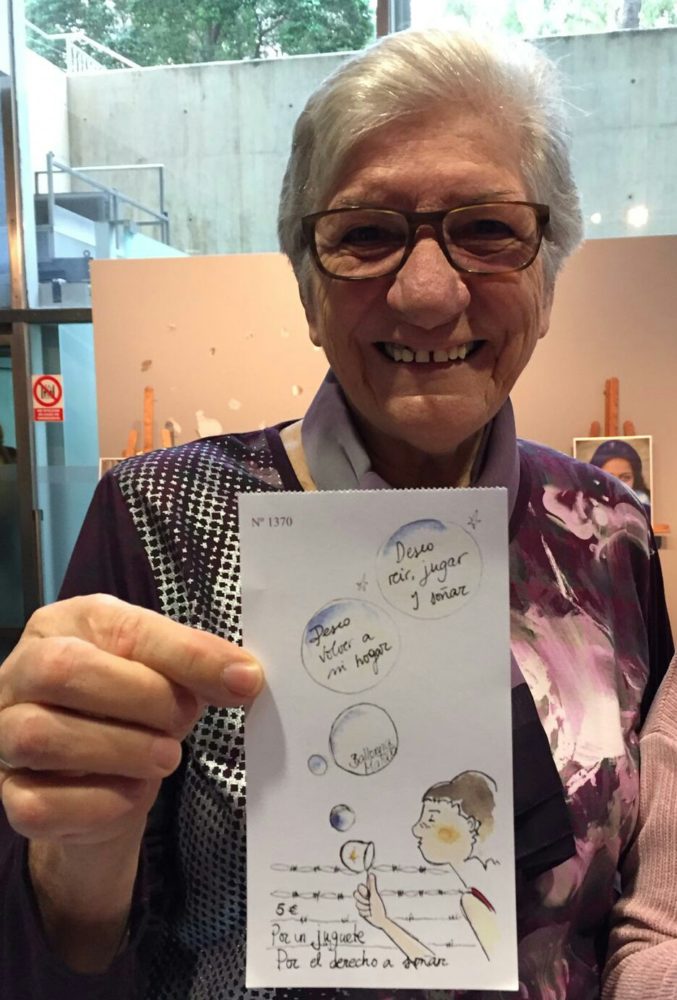 Nº 1370
Deseo
reir, jugar
y soñar
Deseo
volver a
mi hogar
5 €
Por un juguete
Por el derecho a soñar